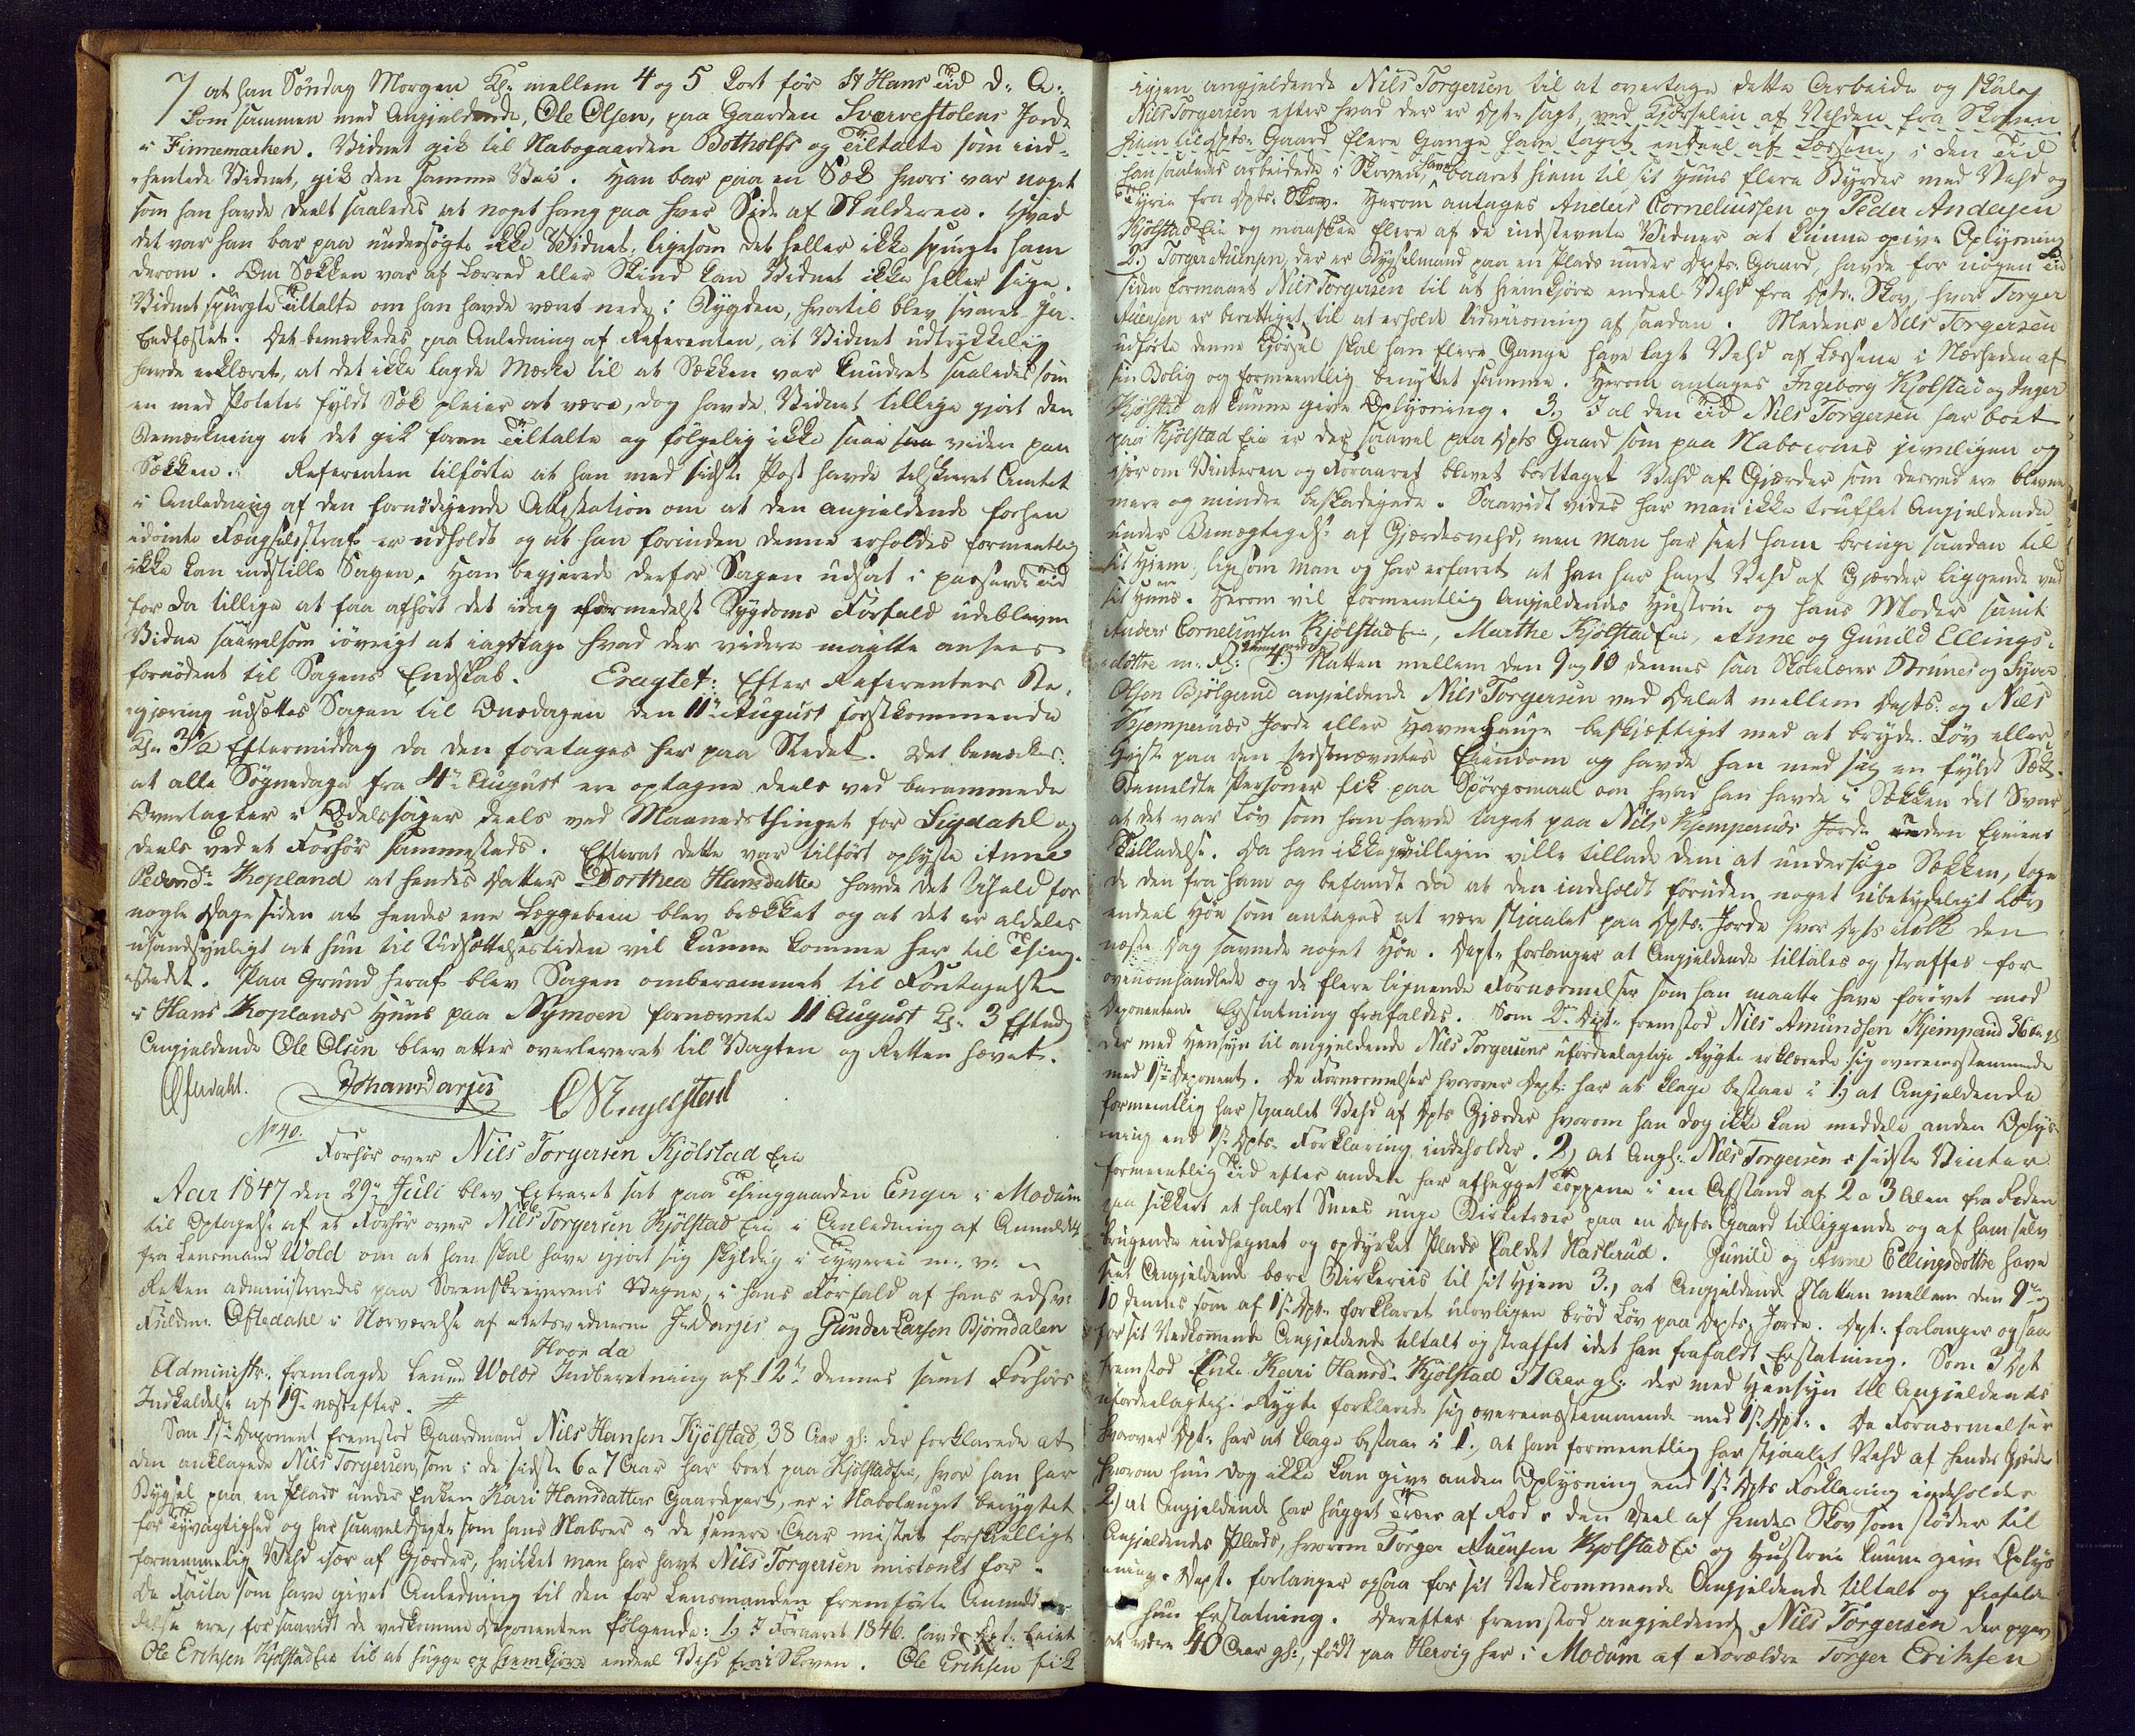 7 at han Søndag Morgen Kl: mellem 4 og 5 kort før St Hans Tid d: A:
kom sammen med Angjeldende, Ole Olsen, paa Gaarden Sværvestolens Jorde
i Finnemarken. Vidnet gik til Nabogaarden Botholfs og Tiltalte som ind-
hentede Vidnet, gik den samme Vei. Han bar paa en Sæk hvori var noget
som han havde deelt saaledes at noget hang paa hver Side af Skulderen. Hvad
det var han bar paa undersøgte ikke Vidnet, ligesom det heller ikke spurgte ham
derom. Om Sækken var af Lærred eller Skind kan Vidnet ikke heller sige.
Vidnet spurgte Tiltalte om han havde været nede i Bygden, hvortil blev svaret Ja.
Eedfæstet. Det bemærkedes paa Anledning af Referenten, at Vidnet udtrykkelig
havde erklæret, at det ikke lagde Mærke til at Sækken var kundret saaledes som
en med Potetes fyldt Sæk pleier at være, dog havde Vidnet tillige gjort den
Bemærkning at det gik foran Tiltalte og følgelig ikke saae saa videre paa
Sækken. Referenten tilførte at han med sidste Post havde tilskrevet Amtet
i Anledning af den fornødigende Attestation om at den angjeldende forhen
idømte Fængselsstraf er udholdt og at han forinden denne erholdes formentlig
ikke kan indstille Sagen. Han begjerede derfor Sagen udsat i passende Tid
for da tillige at faa afhørt det idag formedelst Sygdoms Forfald udeblevne
Vidne saavelsom iøvrigt at iagttage hvad der videre maatte ansees
fornødent til Sagens Endskab. Eragtet: Efter Referentens Be-
gjæring udsættes Sagen til Onsdagen den 11te August førstkommende
Kl: 3½ Eftermiddag da den foretages her paa Stedet. Det bemærkes
at alle Søgnedage fra 4de August ere optagne deels ved berammede
Overtagter i Odelssager deels ved Maanedsthinget for Sigdahl og
deels ved et Forhør sammesteds. Efterat dette var tilført oplyste Anne
Pedersdr Kopland at hendes Datter Dorthea Hansdatter havde det Uheld for
nogle Dage siden at hendes ene Læggebeen blev brækket og at det er aldeles
usandsynligt at hun til Udsættelsestiden vil kunne komme her til Thing-
stedet. Paa Grund heraf blev Sagen omberammet til Foretagelse
i Hans Koplands Huus paa Nymoen fornævnte 11 August Kl: 3 Eftmdg
Angjeldende Ole Olsen blev atter overleveret til Vagten og Retten hævet.
Øftedahl. Johans Darjes
No 40.
Forhør over Nils Torgersen Kjölstad Eie
Aar 1847 den 29de Juli blev Extraret sat paa Thinggaarden Enger i Modum
til Optagelse af et Forhør over Nils Torgersen Kjölstad Eie i Anledning af Anmeldelse
fra Lensmand Wold om at han skal have gjort sig skyldig i Tyverie m: v:
Retten administreredes paa Sorenskriverens Vegne, i hans Forfald af hans edsv:
Fuldm: Øftedahl i Nærværelse af Retsvidnerne J: Darjes og Gunder Larsen Bjørndalen
Hvor da
Administr: fremlagde Lensm Wolds Indberetning af 12te dennes samt Forhørs
Indkaldelse af 19 næstefter.
Som 1ste Deponent fremstod Gaardmand Nils Hansen Kjölstad, 38 Aar gl: der forklarede at
den anklagede Nils Torgersen, som i de sidste 6 a 7 Aar har boet paa Kjölstadeie, hvor han har
Bygsel paa en Plads under Enken Kari Hansdatters Gaardpart, er i Nabolauget berygtet
for Tyvagtighed og har saavel Dept: som hans Naboer i de senere Aar mistet forskelligt
fornemmelig Vehd især af Gjærder, hvilket man har havt Nils Torgersen mistænkt for.
De Facta som have givet Anledning til den for Lensmanden fremførte Anmel-
delse ere, forsaavidt de vedkomme Deponenten følgende: 1) I Foraaret 1846 havde Dept: leiet
Ole Eriksen Kjölstadeie til at hugge og hjemkjøre endeel Vehd fra Skoven. Ole Eriksen fik
igjen angjeldende Nils Torgersen til at overtage dette Arbeide og skal
Nils Torgersen efter hvad der er Dpt: sagt, ved Kjørselen af Vehden fra Skoven
hjem til Dpts: Gaard flere Gange have taget endeel af Læssene, i den Tid
han saaledes arbeidede i Skoven, have baaret hjem til sit Huus flere Byrder med Vehd og
Tyrie fra Dpts: Skov. Herom antages Anders Corneliussen og Peder Andersen
Kjölstad Eie og maaskee flere af de indstevnte Vidner at kunne give Oplysning
2) Torger Auensen, der er Bygselmand paa en Plads under Dpts: Gaard, havde for nogen Tid
siden formaaet Nils Torgersen til at hjemkjøre endeel Vehd fra Dpts: Skov, hvor Torger
Auensen er berettiget til at erholde Udviisning af saadan. Medens Nils Torgersen
udførte denne Kjørsel skal han flere Gange have lagt Vehd af Læssene i Nærheden af
sin Bolig og formeentlig benyttet samme. Herom antages Ingeborg Kjölstad og Inger
Kjölstad at kunne give Oplysning. 3) I al den Tid Nils Torgersen har boet
paa Kjölstad Eie er der saavel paa Dpts Gaard som paa Naboernes jevnligen og
især om Vinteren og Foraaret blevet borttaget Vehd af Gjærder som derved ere blevne
mere og mindre beskadigede. Saavidt vides har man ikke truffet Angjeldende
under Bemægtigelse af Gjærdesvehd, men man har seet ham bringe saadan til
sit Hjem, ligesom man og har erfaret at han har havt Vehd af Gjærder liggende ved
sit Huus. Herom vil formeentlig Angjeldendes Hustrue og hans Moder samt
Anders Corneliussen Kjölstad Eie, Marthe Kjölstad Eie, Anne og Gunild Ellings-
døttre m: fl: 4.) Natten mellem den 9 og 10 dennes saa Skolelærer Strunes og Syver
Olsen Bjölgerud angjeldende Nils Torgersen ved Delet mellem Dpts: og Nils
Kjemperuds Jorde eller Havnehauge beskjæftiget med at bryde Løv eller
Qvist paa den sidstnævntes Eiendom og havde han med sig en fyldt Sæk.
Bemeldte Personer fik paa Spørgsmaal om hvad han havde i Sækken det Svar
at det var Løv som han havde taget paa Nils Kjemperuds Jorde uden Eierens
Tilladelse. Da han ikke godvilligen ville tillade dem at undersøge Sækken, toge
de den fra ham og befandt da at den indeholdt foruden noget ubetydeligt Løv
endeel Høe som antages at være stjaalet paa Dpts: Jorde hvor Dpts Folk den
næste Dag savnede noget Høe. Dept: forlanger at Angjeldende tiltales og straffes for
ovenomhandlede og de flere lignende Fornærmelser som han maatte have forøvet mod
Deponenten. Erstatning frafaldes. Som 2den Dept: fremstod Nils Amundsen Kjemperud 36 Aar gl:
der med Hensyn til angjeldende Nils Torgersens ufordeelagtige Rygte erklærede sig overeensstemmende
med 1ste Deponent. De Fornærmelser hvorover Dept: har at klage bestaae i 1) at Angjeldende
formeentlig har stjaalet Vehd af Dpts Gjærder hvorom han dog ikke kan meddele anden Oplys-
ning end 1ste Dpts: Forklaring indeholder. 2) at Angj: Nils Torgersen i sidste Vinter
formeentlig Tid efter anden har afhugget Toppene i en Afstand af 2 a 3 Alen fra Roden
paa sikkert et halvt Snees unge Birketræer paa en Dpts: Gaard tilliggende og af ham selv
brugende indhegnet og opdyrket Plads kaldet Haslerud. Gunild og Anne Ellingsdøttre have
seet Angjeldende bære Birkeriis til sit Hjem 3.) at Angjeldende Natten mellem den 9de og
10 dennes som af 1ste Dpt: forklaret ulovligen brød Løv paa Dpts: Jorde. Dept: forlanger ogsaa
for sit Vedkommende Angjeldende tiltalt og straffet idet han frafaldt Erstatning. Som 3 Dpt
fremstod Enke Kari Hansdr Kjölstad 37 Aar gl: der med Hensyn til Angjeldendes
ufordeelagtige Rygte forklarede sig overeensstemmende med 1ste Dpt:. De Fornærmelser
hvorover Dpt: har at klage bestaae i 1.) at han formeentlig har stjaalet Vehd af hendes Gjærder
hvorom hun dog ikke kan give anden Oplysning end 1ste Dpts Forklaring indeholder
2.) at Angjeldende har hugget Træer af Rod i den Deel af hendes Skov som støder til
Angjeldendes Plads, hvorom Torger Auensen Kjölstad Eie og Hustrue kunne give Oplys-
ning. Dept: forlanger ogsaa for sit Vedkommende Angjeldende tiltalt og frafaldt
hun Erstatning. Derefter fremstod angjeldende Nils Torgersen der opgav
at være 40 Aar gl:, født paa Hervig her i Modum af Forældre Torger Eriksen